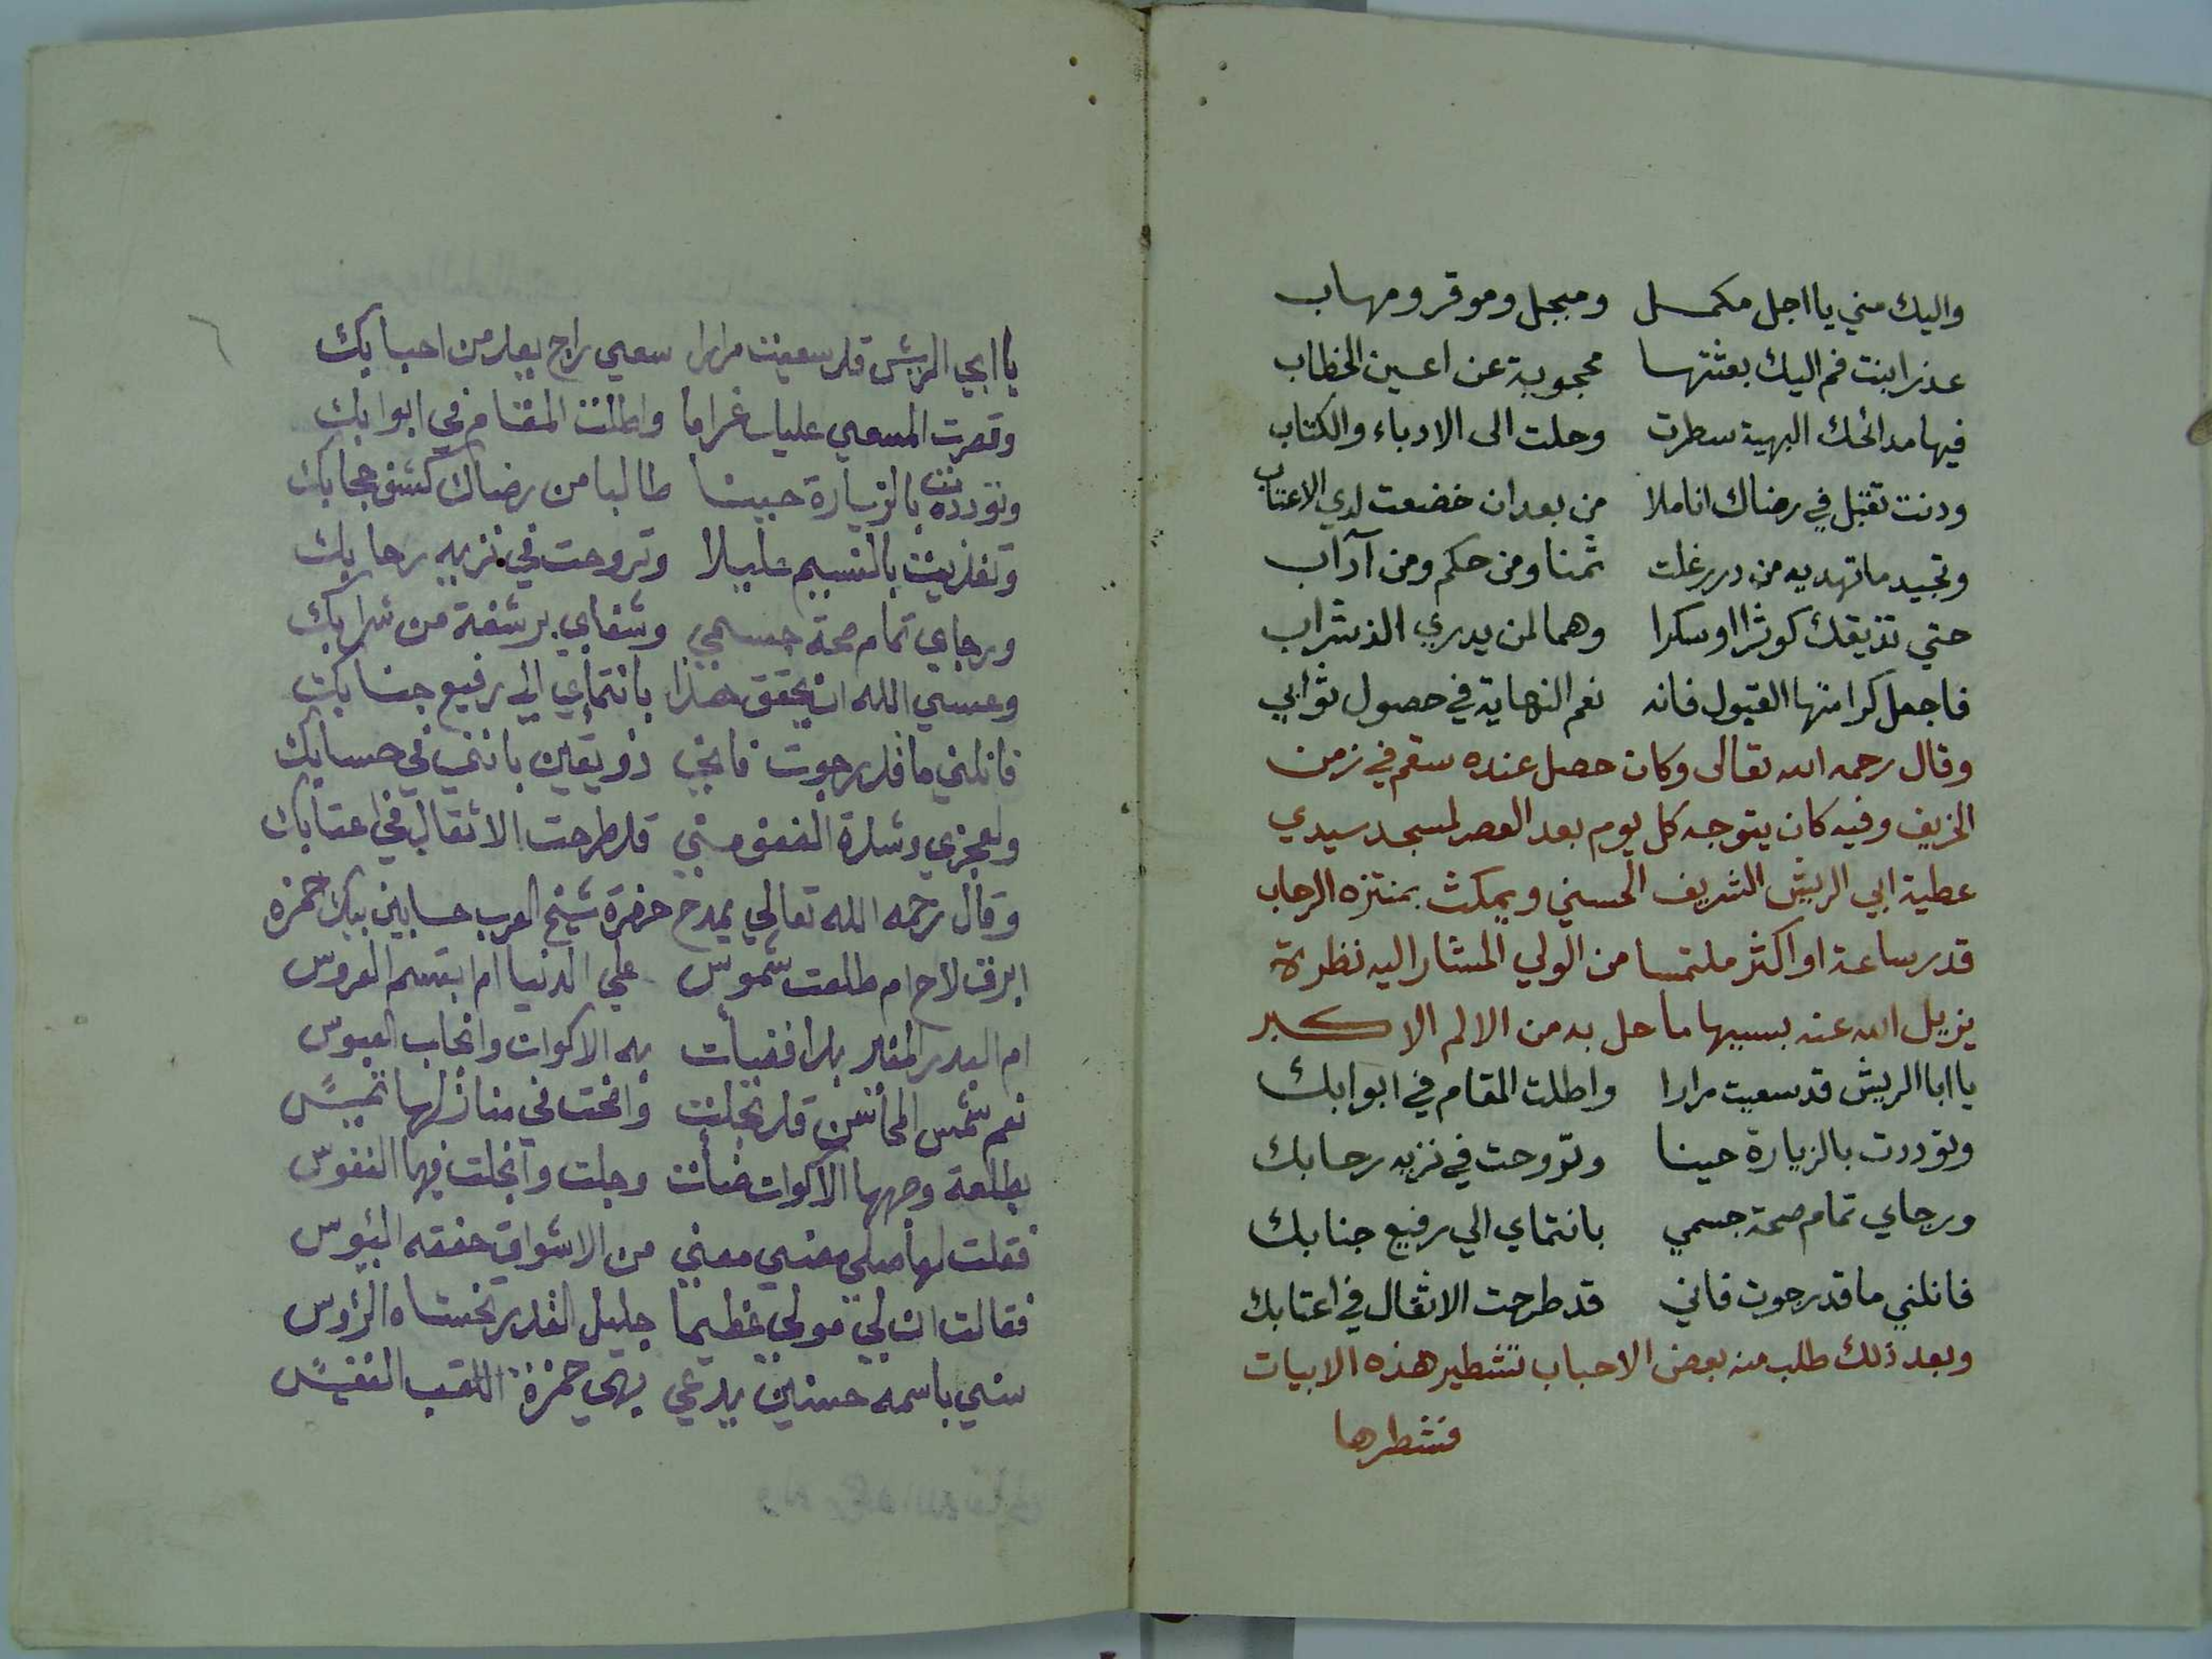 واليك مني يا اجل مكمل ومبجل وموقر ومهاب
عذرا بنت فم اليك بعثتها محجوبة عن اعين الخطاب
فيها مدائحك البهية سطرت وحلت الى الادباء والكتاب
ودنت تقبل في رضاك اناملا من بعد ان خضعت لدي الاعتاب
وتجيد ما تهديه من درر غلت ثمنا ومن حكم ومن آداب
حتي تذيقك كوثرا او سكرا وهما لمن يدري الذ شراب
فاجعل كرامتها القبول فانه نعم النهاية في حصول ثوابي
وقال رحمه الله تعالى وكان حصل عنده سقم في زمن
الخريف وفيه كان يتوجه كل يوم بعد العصر لمسجد سيدي
عطية ابي الريش الشريف الحسني ويمكث بمنتزه الرحاب
قدر ساعة او اكثر ملتمسا من الولي المشار اليه نظرة
يزيل الله عنه بسببها ما حل به من الالم الاكبر
يا ابا الريش قد سعيت مرارا واطلت المقام في ابوابك
وتوددت بالزيارة حينا وتروحت في نزيه رحابك
ورجاي تمام صحة جسمي بانتماي الي رفيع جنابك
فانلني ما قد رجوت فاني قد طرحت الاثقال في اعتابك
وبعد ذلك طلب منه بعض الاحباب تشطير هذه الابيات
فشطرها
يا ابي الريش قد سعيت مرارا سعي راج يعد من احبابك
وقصرت المسعي عليك غراما واطلت المقام في ابوابك
وتوددت بالزيارة حينا طالبا من رضاك كشف حجابك
وتغذيت بالنسيم عليلا وتروحت في نزيه رحابك
ورجاي تمام صحة جسمي وشفاي برشفة من شرابك
وعسي الله ان يحقق هذا بانتمأي الي رفيع جنابك
فانلني ما قد رجوت فاني ذو يقين بانني في حسابك
ولعجزي وشدة الضعف مني قد طرحت الاثقال في اعتابك
وقال رحمه الله تعالي يمدح حضرة شيخ العرب حسانين بيك حمزه
ابرق لاح ام طلعت شموس علي الدنيا ام ابتسم العروس
ام البدر المنير بدا فضأت به الاكوان وانجاب العبوس
نعم شمس المحاسن قد تجلت واضحت في منازلها تميس
بطلعة وجهها الاكوان ضأت وجلت وانجلت فيها النفوس
فقلت لها صلي مضني معني من الاشواق حفته البئوس
فقالت ان لي مولي عظيما جليل القدر تخشاه الرؤس
سني باسمه حسنين يدعي بهي حمزة اللقب النفيس